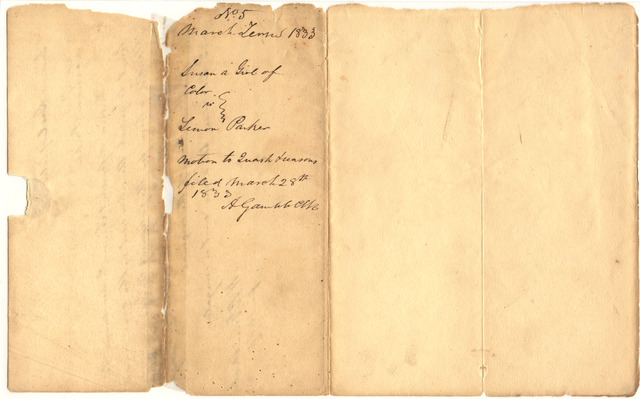 No. 5
March Term 1833
Susan a Girl of
Color
vs
Lemon Parker
Motion to Quash & reasons
filed March 28th
1833
A Gamble Clk